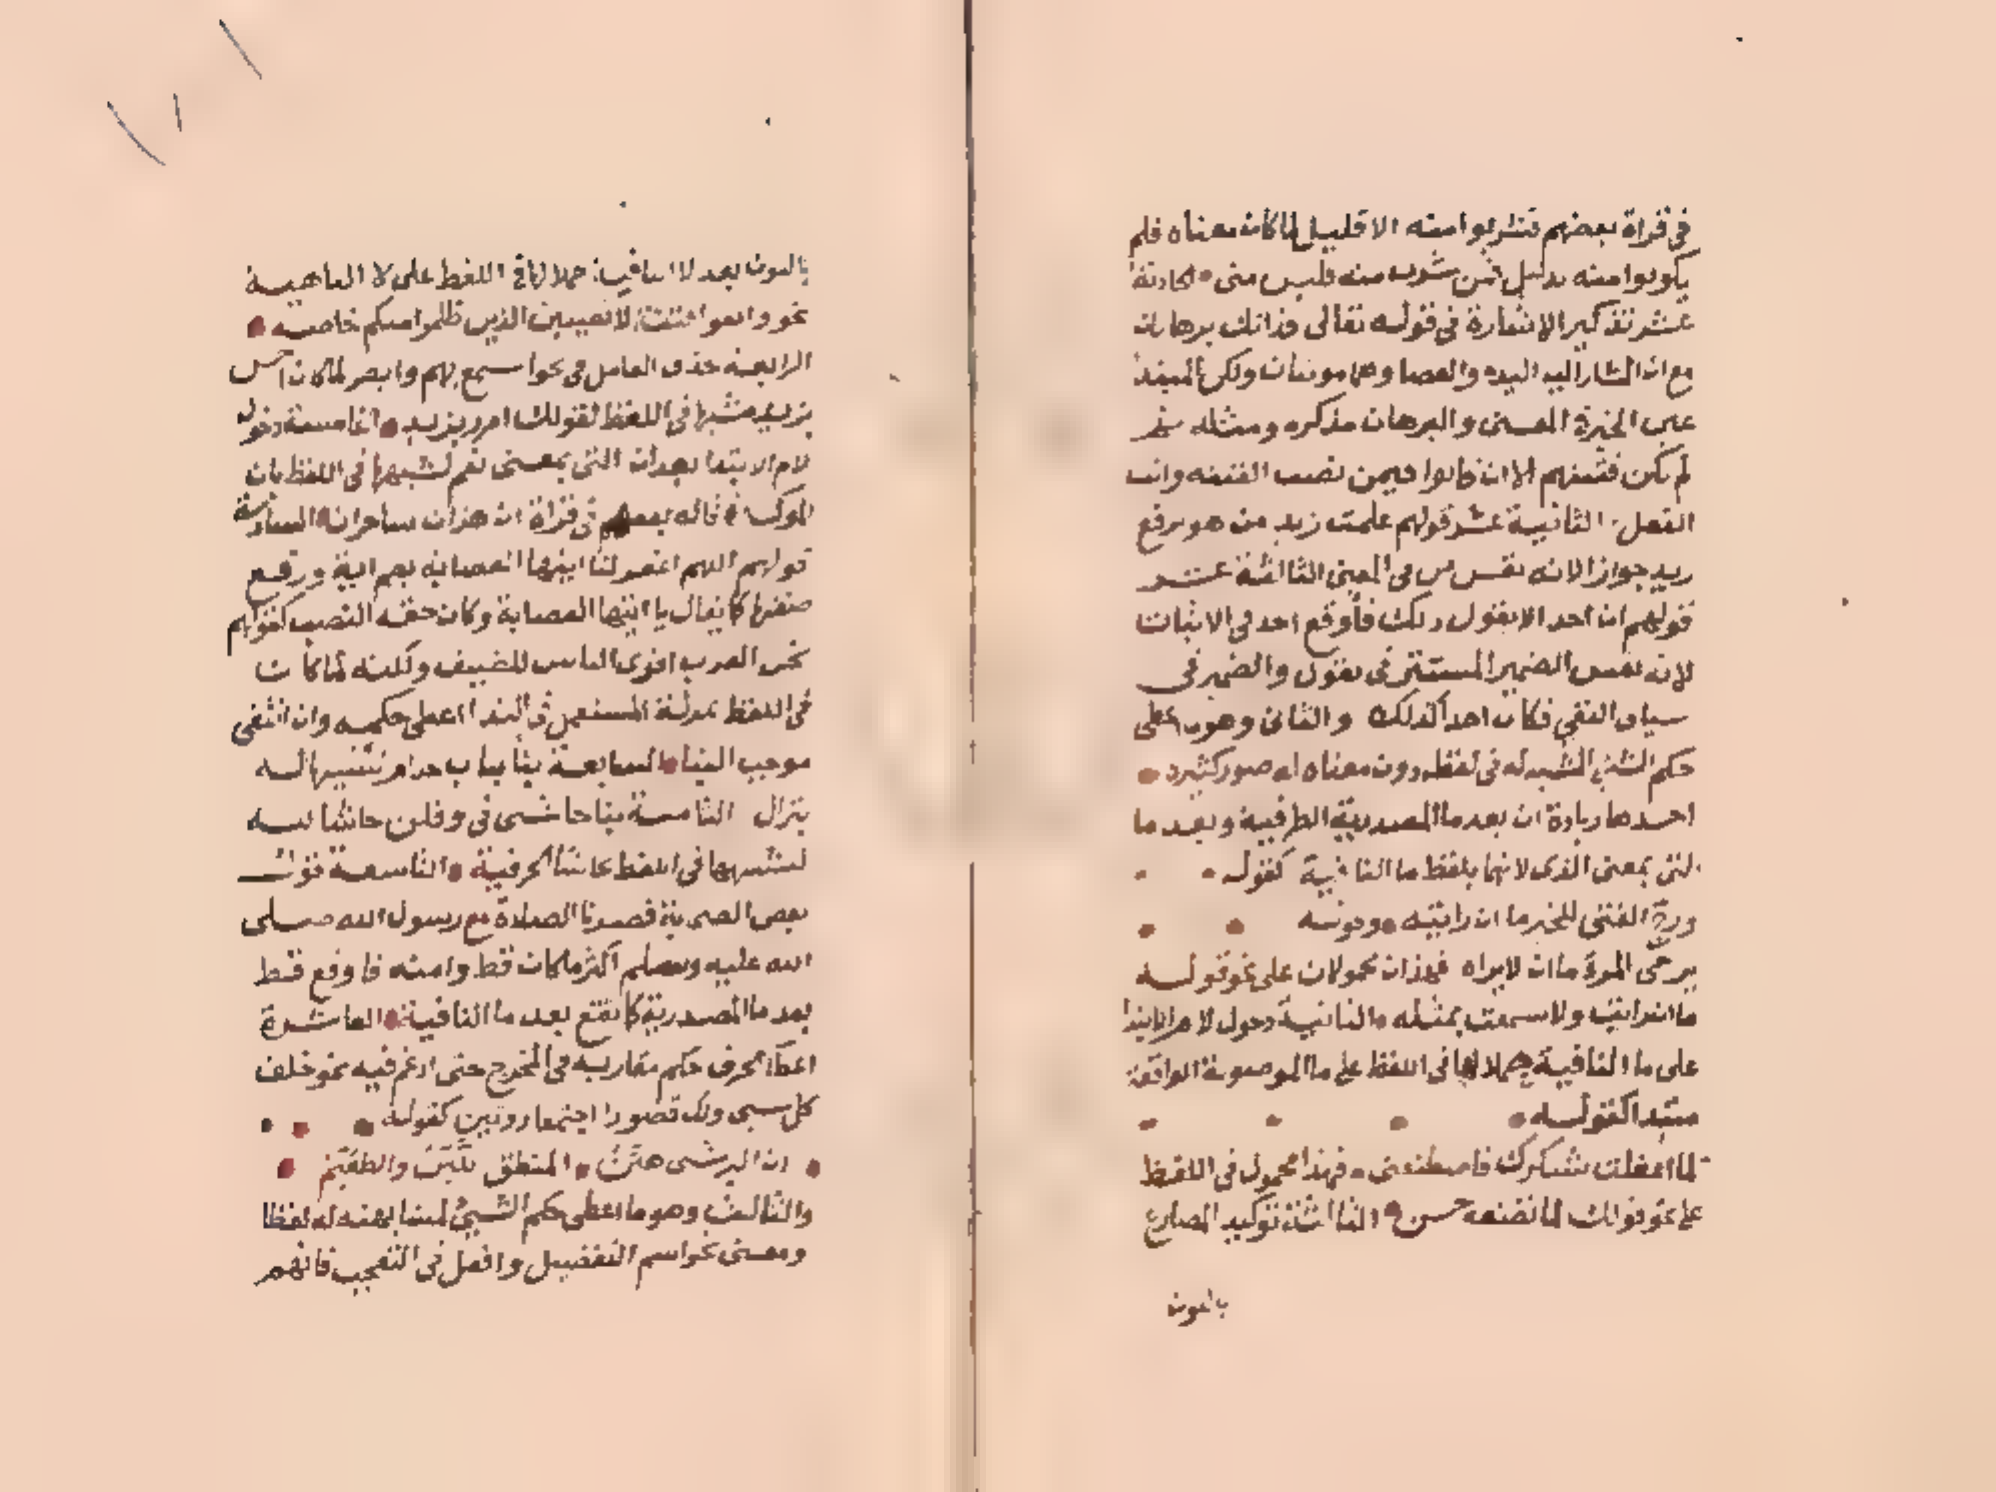 في قراة بعضهم فشربوا منه الا قليل لما كان معناه فلم
يكونوا منه بدليل فمن شرب منه فليس منى الحادية
عشر تذكير الاشارة في قوله تعالى فذانك برهانان
مع ان المشار اليه اليد والعصا وهما مونثان ولكن المبتدا
عين الخبر في المعنى والبرهان مذكر ومثله ثم
لم تكن فتنتهم الا ان قالوا فيمن نصب الفتنه وانث
الفعل الثانية عشر قولهم علمت زيد من هو برفع
زيد جوازا لانه نفس من في المعنى الثالثة عشر
قولهم ان احدا لا يقول ذلك فأوقع احد في الاثبات
لانه نفس الضمير المستتر في يقول والضمير في
سياق النفي فكان احد كذلك والثانى وهو ما اعطى
حكم الشئ المشبه له في لفظه دون معناه له صور كثيرة
احدها زيادة ان بعد ما المصدرية الظرفية وبعد ما
التى بمعنى الذى لانها بلفظ ما النافية كقوله
ورج الفتى للخير ما ان رايته وقوله
يرجى المرء ما ان لا يراه فهذان محمولان على نحو قوله
ما ان رايت ولا سمعت بمثله الثانية دخول لام الابتدا
على ما النافية حملا لها في اللفظ على ما الموصولة الواقعة
مبتدا كقوله
لما اغفلت شكرك فاصطنعنى فهذا محمول في اللفظ
على نحو قولك لما تصنعه حسن الثالثة توكيد المضارع
بالنون
بالنون بعد لا النافية حملا لها في اللفظ على لا الناهية
نحو واتقوا فتنة لا تصيبن الذين ظلموا منكم خاصه
الرابعة حذف الفاعل في نحو اسمع بهم وابصر لما كان احسن
بزيد مشبها في اللفظ لقولك امرر بزيد الخامسة دخول
لام الابتدا بعد ان التى بمعنى نعم لشبهها في اللفظ بان
الموكدة قاله بعضهم في قراة ان هذان ساحران السادسة
قولهم اللهم اغفر لنا ايتها العصابه بضم اية ورفع
صفتها كما يقال يا ايتها العصابة وكان حقه النصب كقولهم
نحن العرب اقرى الناس للضيف ولكنه لما كان
في اللفظ بمنزلة المستعمل في الندا اعطى حكمه وان انتفى
موجب البنا السابعة بنا باب حذام تشبيها له
بنزال الثامنة بنا حاشى في وقلن حاشا لله
لشبهها في اللفظ بحاشا الحرفية والتاسعة قول
بعض الصحابة قصرنا الصلاة مع رسول الله صلى
الله عليه وسلم اكثر ما كان قط وامنه فاوقع قط
بعد ما المصدرية كما تقع بعد ما النافية العاشرة
اعطا الحرف حكم مقاربه في المخرج حتى ادغم فيه نحو خلق
كل شى ولك قصورا اجتمعا رويين كقوله
المنطق اللين والطعيم
والثالث وهو ما اعطى حكم الشئ لمشابهته له لفظا
ومعنى نحو اسم التفضيل وافعل في التعجب فانهم